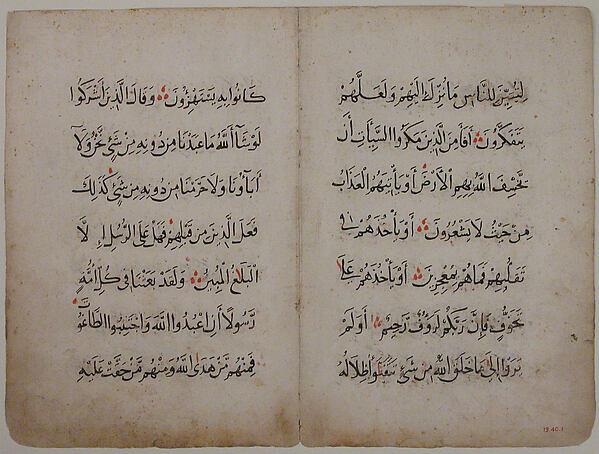 لِتُبَيِّنَ لِلنَّاسِ مَا نُزِّلَ اِلَيْهِمْ وَلَعَلَّهُمْ
يَتَفَكَّرُونَ اَفَاَمِنَ الَّذِينَ مَكَرُوا السَّيِّئَاتِ اَنْ
يَخْسِفَ اللّٰهُ بِهِمُ الْاَرْضَ اَوْ يَأْتِيَهُمُ الْعَذَابُ
مِنْ حَيْثُ لَا يَشْعُرُونَ اَوْ يَأْخُذَهُمْ فِي
تَقَلُّبِهِمْ فَمَاهُمْ بِمُعْجِزِينَ اَوْ يَأْخُذَهُمْ عَلٰى
تَخَوُّفٍ فَاِنَّ رَبَّكُمْ لَرَؤُفٌ رَّحِيمٌ اَوَلَمْ
يَرَوْا اِلٰى مَا خَلَقَ اللّٰهُ مِنْ شَيْءٍ يَتَفَيَّؤُا ظِلَالُهُ
كَانُوا بِهِ يَسْتَهْزِؤُنَ وَقَالَ الَّذِينَ اَشْرَكُوا
لَوْ شَآءَ اللّٰهُ مَا عَبَدْنَا مِنْ دُونِهِ مِنْ شَيْءٍ نَحْنُ وَلَآ
اٰبَآؤُنَا وَلَا حَرَّمْنَا مِنْ دُونِهِ مِنْ شَيْءٍ كَذٰلِكَ
فَعَلَ الَّذِينَ مِنْ قَبْلِهِمْ فَهَلْ عَلَى الرُّسُلِ اِلَّا
الْبَلَاغُ الْمُبِينُ وَلَقَدْ بَعَثْنَا فِي كُلِّ اُمَّةٍ
رَّسُولًا اَنِ اعْبُدُوا اللّٰهَ وَاجْتَنِبُوا الطَّاغُوتَ
فَمِنْهُمْ مَّنْ هَدَى اللّٰهُ وَمِنْهُمْ مَّنْ حَقَّتْ عَلَيْهِ